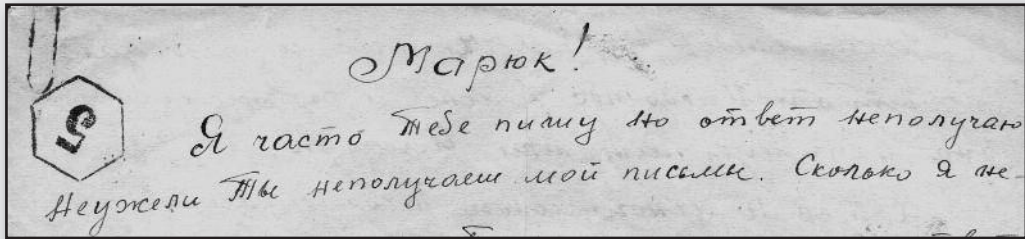 Марюк!
5
Я часто Тебе пишу но ответ неполучаю
Неужели Ты неполучаеш мой письмы. Сколько я не-